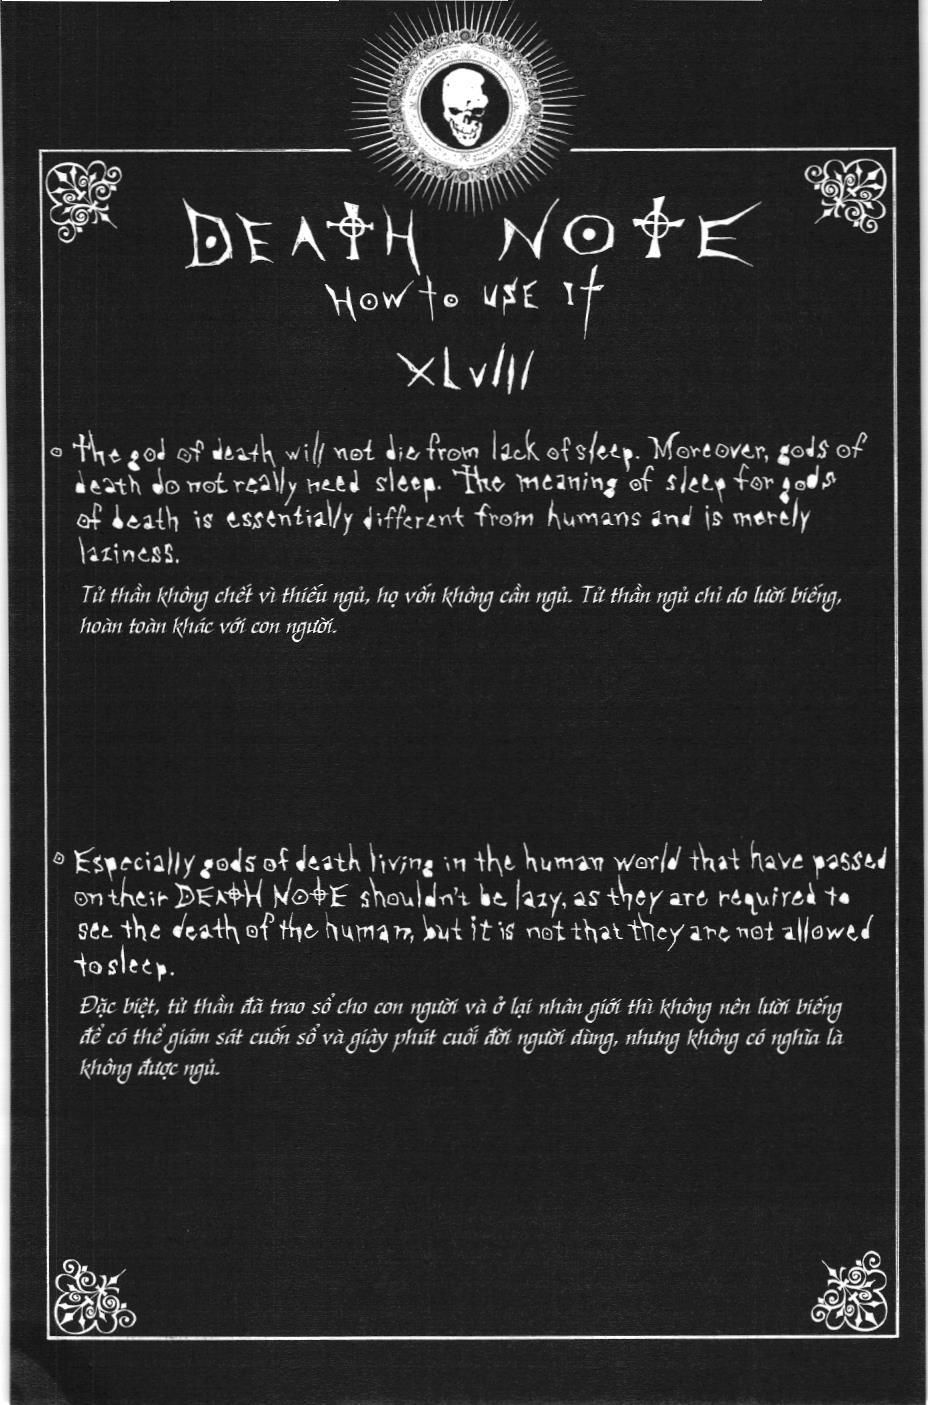 DEATH NOTE
HOW to USE It
XLVIII
the god of death will not die from lack of sleep. Moreover, gods of
death do not really need sleep. The meaning of sleep for gods
of death is essentially different from humans and is merely
laziness.
Tử thần không chết vì thiếu ngủ, họ vốn không cần ngủ. Tử thần ngủ chỉ do lười biếng,
hoàn toàn khác với con người.
Especially gods of death living in the human world that have passed
on their DEATH NOTE shouldn't be lazy, as they are required to
see the death of the human, but it is not that they are not allowed
to sleep.
Đặc biệt, tử thần đã trao sổ cho con người và ở lại nhân giới thì không nên lười biếng
để có thể giám sát cuốn sổ và giây phút cuối đời người dùng, nhưng không có nghĩa là
không được ngủ.